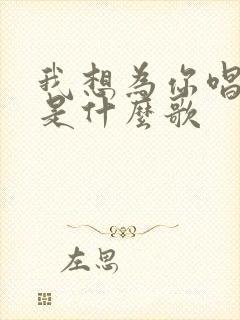 我想為你唱
是什麼歌
左思